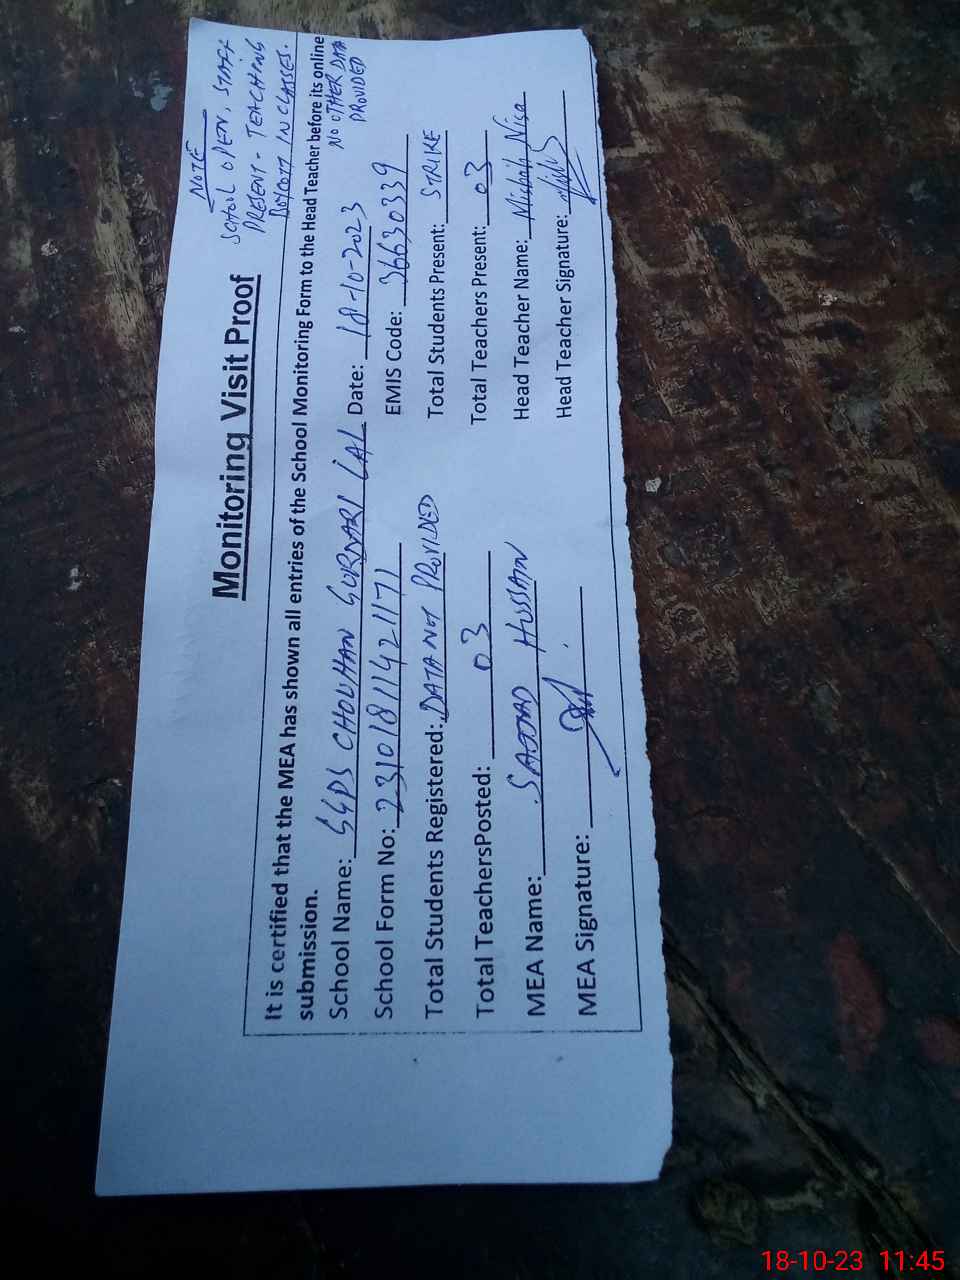 NOTE
SCHOOL OPEN, STAFF
PRESENT - TEACHING
BOYCOTT IN CLASSES.
Monitoring Visit Proof
It is certified that the MEA has shown all entries of the School Monitoring Form to the Head Teacher before its online
submission.
NO OTHER DATA
PROVIDED
School Name: GGPS CHOUHAN GURMARI LAL Date: 18-10-2023
School Form No: 23101811421171 EMIS Code: 36630339
Total Students Registered: DATA NOT PROVIDED Total Students Present: STRIKE
Total TeachersPosted: 03 Total Teachers Present: 03
MEA Name: SAJJAD HUSSAIN Head Teacher Name: Misbah Nisa
MEA Signature: Head Teacher Signature:
18-10-23 11:45